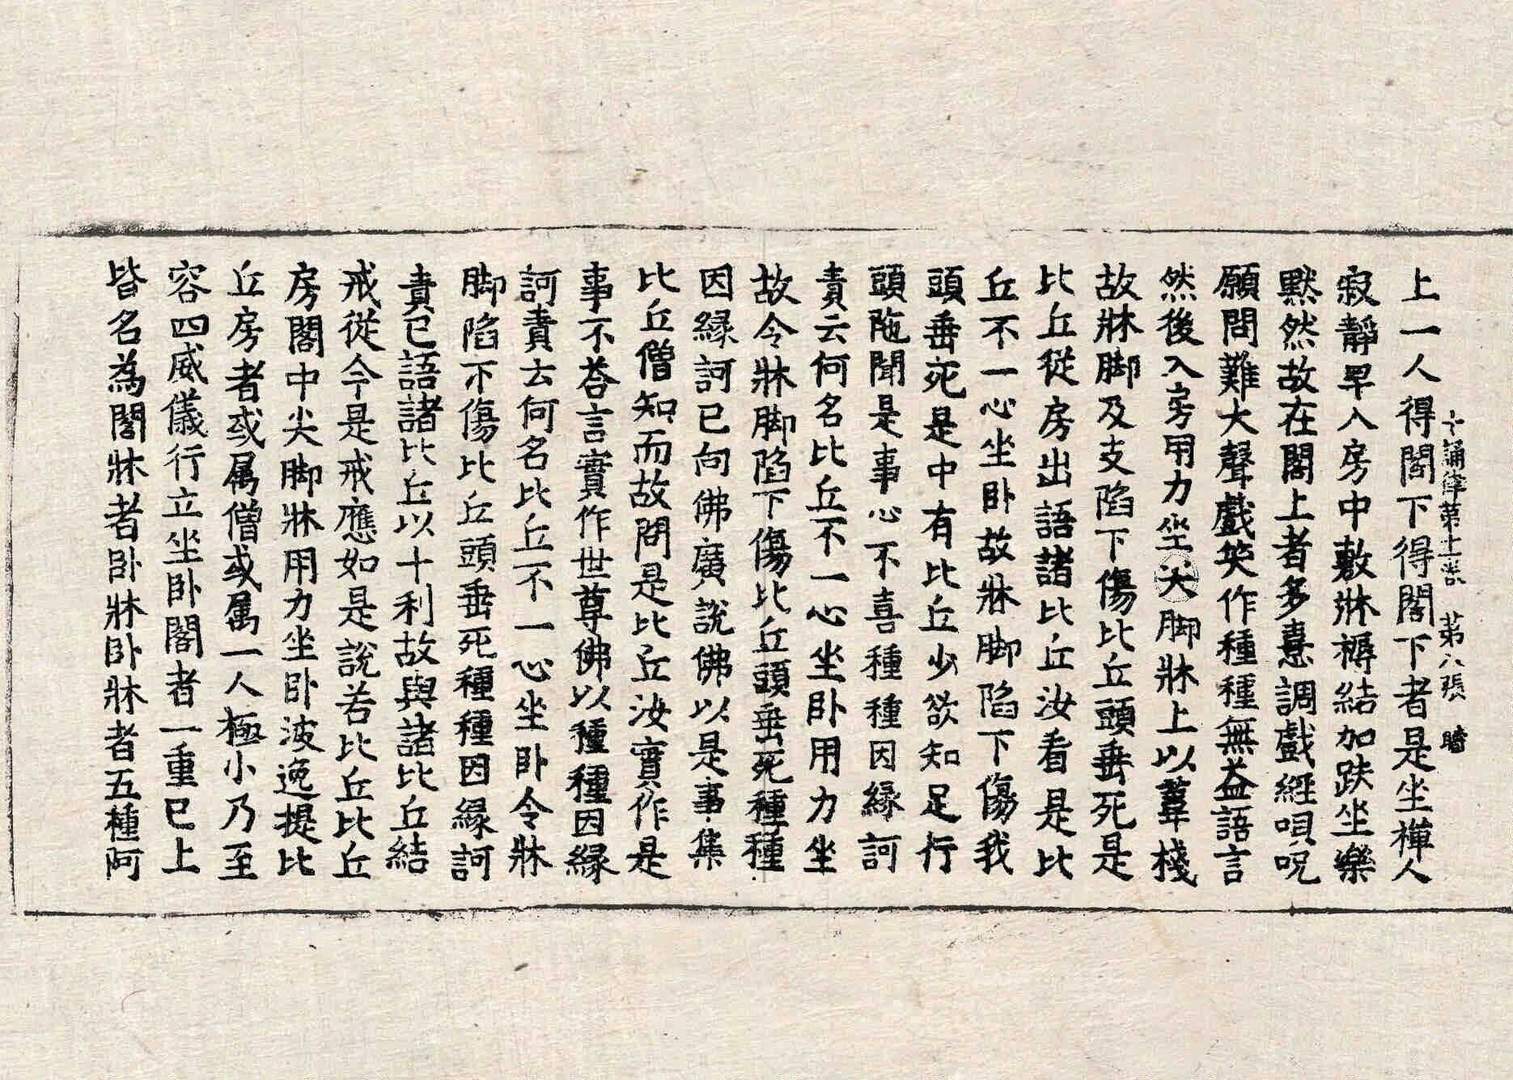 十誦律第十一卷　第八張　瞻
上一人得閣下得閣下者是坐禪人
寂靜早入房中敷牀褥結加趺坐樂
黙然故在閣上者多憙調戲經唄呪
願問難大聲戲笑作種種無益語言
然後入房用力坐尖脚牀上以葦棧
故牀脚及支陷下傷比丘頭垂死是
比丘從房出語諸比丘汝看是比
丘不一心坐卧故牀脚陷下傷我
頭垂死是中有比丘少欲知足行
頭陁聞是事心不喜種種因縁訶
責云何名比丘不一心坐卧用力坐
故令牀脚陷下傷比丘頭垂死種種
因縁訶已向佛廣說佛以是事集
比丘僧知而故問是比丘汝實作是
事不荅言實作世尊佛以種種因縁
訶責云何名比丘不一心坐卧令牀
脚陷下傷比丘頭垂死種種因縁訶
責已語諸比丘以十利故與諸比丘結
戒從今是戒應如是說若比丘比丘
房閣中尖脚牀用力坐卧波逸提比
丘房者或属僧或属一人極小乃至
容四威儀行立坐卧閣者一重已上
皆名為閣牀者卧牀卧牀者五種阿